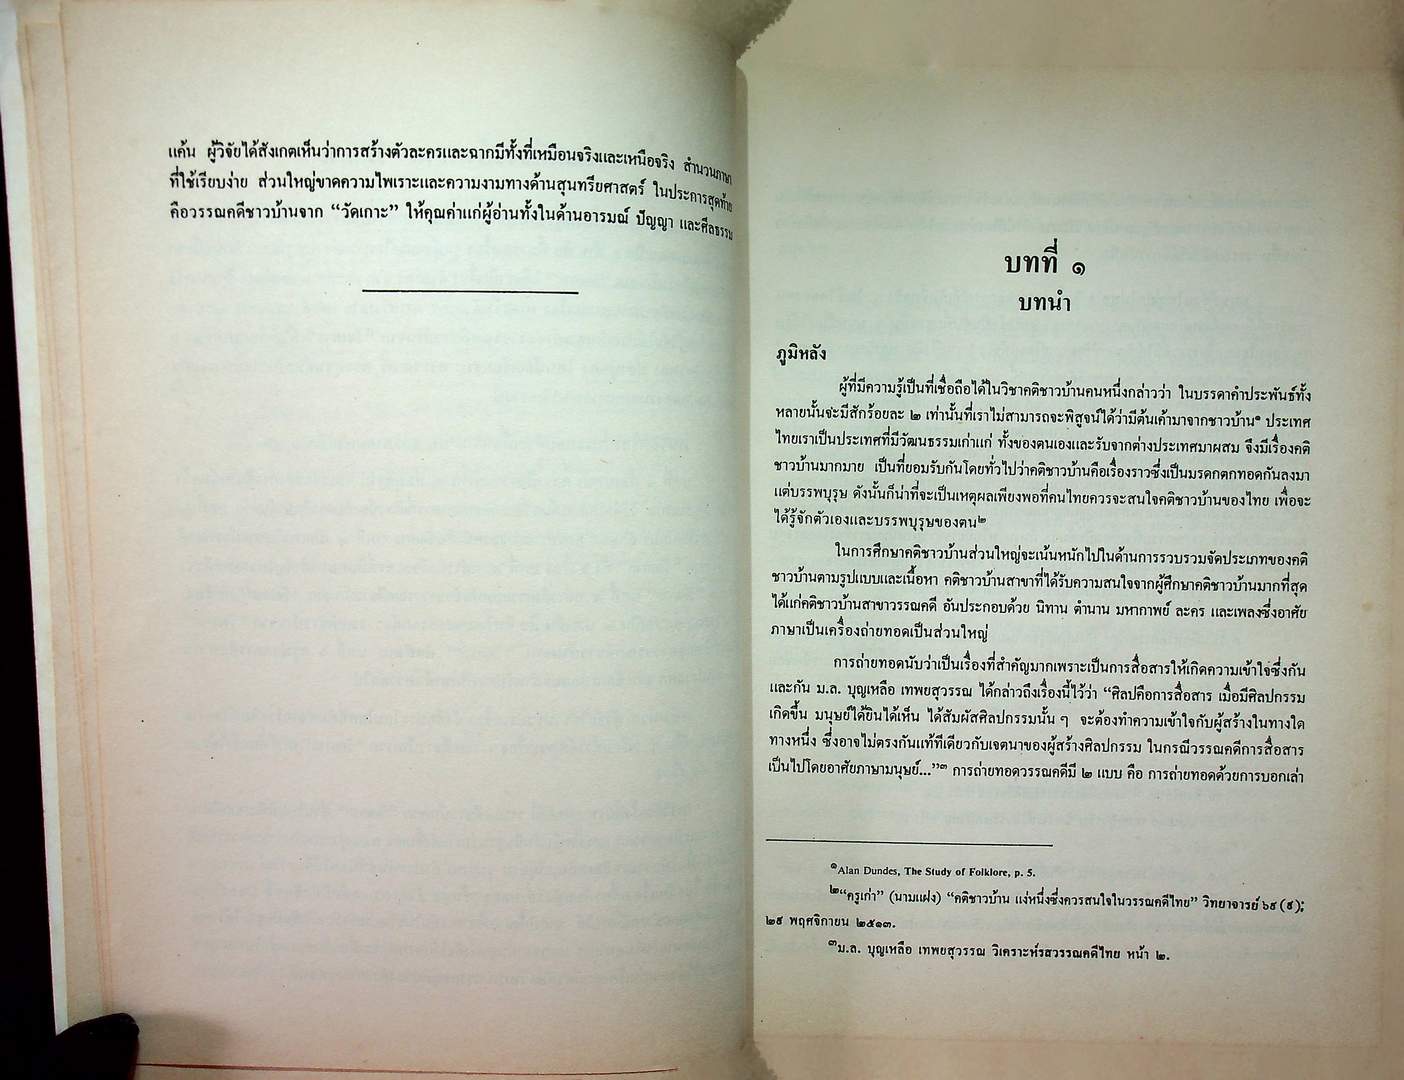 แค้น ผู้วิจัยได้สังเกตเห็นว่าการสร้างตัวละครและฉากมีทั้งที่เหมือนจริงและเหนือจริง สำนวนภาษา
ที่ใช้เรียบง่าย ส่วนใหญ่ขาดความไพเราะและความงามทางด้านสุนทรียศาสตร์ ในประการสุดท้าย
คือวรรณคดีชาวบ้านจาก “วัดเกาะ” ให้คุณค่าแก่ผู้อ่านทั้งในด้านอารมณ์ ปัญญา และศีลธรรม
บทที่ ๑
บทนำ
ภูมิหลัง
ผู้ที่มีความรู้เป็นที่เชื่อถือได้ในวิชาคติชาวบ้านคนหนึ่งกล่าวว่า ในบรรดาคำประพันธ์ทั้ง
หลายนั้นจะมีสักร้อยละ ๒ เท่านั้นที่เราไม่สามารถจะพิสูจน์ได้ว่ามีต้นเค้ามาจากชาวบ้าน๑ ประเทศ
ไทยเราเป็นประเทศที่มีวัฒนธรรมเก่าแก่ ทั้งของตนเองและรับจากต่างประเทศมาผสม จึงมีเรื่องคติ
ชาวบ้านมากมาย เป็นที่ยอมรับกันโดยทั่วไปว่าคติชาวบ้านคือเรื่องราวซึ่งเป็นมรดกตกทอดกันลงมา
แต่บรรพบุรุษ ดังนั้นก็น่าที่จะเป็นเหตุผลเพียงพอที่คนไทยควรจะสนใจคติชาวบ้านของไทย เพื่อจะ
ได้รู้จักตัวเองและบรรพบุรุษของตน๒
ในการศึกษาคติชาวบ้านส่วนใหญ่จะเน้นหนักไปในด้านการรวบรวมจัดประเภทของคติ
ชาวบ้านตามรูปแบบและเนื้อหา คติชาวบ้านสาขาที่ได้รับความสนใจจากผู้ศึกษาคติชาวบ้านมากที่สุด
ได้แก่คติชาวบ้านสาขาวรรณคดี อันประกอบด้วย นิทาน ตำนาน มหากาพย์ ละคร และเพลงซึ่งอาศัย
ภาษาเป็นเครื่องถ่ายทอดเป็นส่วนใหญ่
การถ่ายทอดนับว่าเป็นเรื่องที่สำคัญมากเพราะเป็นการสื่อสารให้เกิดความเข้าใจซึ่งกัน
และกัน ม.ล. บุญเหลือ เทพยสุวรรณ ได้กล่าวถึงเรื่องนี้ไว้ว่า “ศิลปคือการสื่อสาร เมื่อมีศิลปกรรม
เกิดขึ้น มนุษย์ได้ยินได้เห็น ได้สัมผัสศิลปกรรมนั้น ๆ จะต้องทำความเข้าใจกับผู้สร้างในทางใด
ทางหนึ่ง ซึ่งอาจไม่ตรงกันแท้ทีเดียวกับเจตนาของผู้สร้างศิลปกรรม ในกรณีวรรณคดีการสื่อสาร
เป็นไปโดยอาศัยภาษามนุษย์...”๓ การถ่ายทอดวรรณคดีมี ๒ แบบ คือ การถ่ายทอดด้วยการบอกเล่า
๑Alan Dundes, The Study of Folklore, p. 5.
๒“ครูเก่า” (นามแฝง) “คติชาวบ้าน แง่หนึ่งซึ่งควรสนใจในวรรณคดีไทย” วิทยาจารย์ ๖๙ (๙);
๒๙ พฤศจิกายน ๒๕๑๓.
๓ม.ล. บุญเหลือ เทพยสุวรรณ วิเคราะห์รสวรรณคดีไทย หน้า ๒.